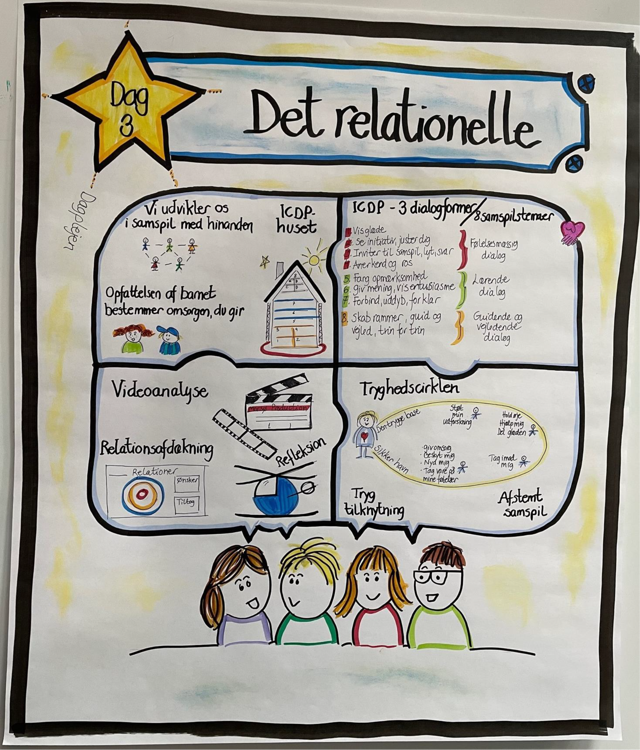 Dag
3
Det relationelle
Dagplejen
Vi udvikler os
i samspil med hinanden
ICDP-
huset
Opfattelsen af barnet
bestemmer omsorgen, du gir
ICDP - 3 dialogformer/8 samspilstemaer
1. Vis glæde
2. Se initiativ, juster dig
3. Inviter til samspil, lyt, svar
4. Anerkend og ros
Følelsesmæssig
dialog
5. Fang opmærksomhed
6. giv mening, vis entusiasme
7. Forbind, uddyb, forklar
Lærende
dialog
8. Skab rammer, guid og
vejled, trin for trin
Guidende og
vejledende
dialog
Videoanalyse
Relationsafdækning
Refleksion
Relationer
Ønsker
Tiltag
Tryghedscirklen
Den trygge base
Støt
min
udforskning
Hold øje
Hjælp mig
Del glæden
Sikker havn
giv omsorg
Beskyt mig
Nyd mig
mine følelser
Tag imod
mig
Tryg
tilknytning
Afstemt
samspil